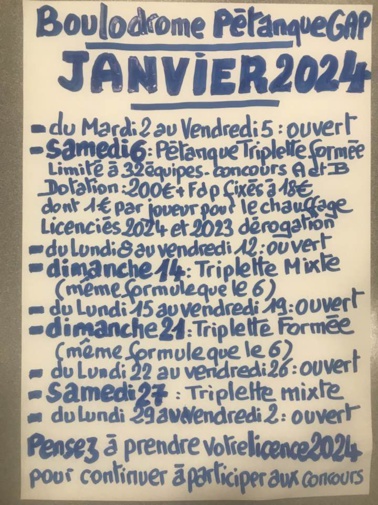 Boulodrome PétanqueGAP
JANVIER 2024
- du Mardi 2 au Vendredi 5 : ouvert
- Samedi 6 : Pétanque Triplette formée
Limité à 32 équipes - concours A et B
Dotation : 200€ + Fdp Cixés à 18€
dont 1€ par joueur pour le chauffage
Licenciés 2024 et 2023 dérogation
- du Lundi 8 au vendredi 12 : ouvert
- dimanche 14 : Triplette Mixte
(même formule que le 6)
- du Lundi 15 au vendredi 19 : ouvert
- dimanche 21 : Triplette Formée
(même formule que le 6)
- du Lundi 22 au vendredi 26 : ouvert
- Samedi 27 : Triplette mixte
- du Lundi 29 au Vendredi 2 : ouvert
Pensez à prendre votre licence 2024
pour continuer à participer aux concours